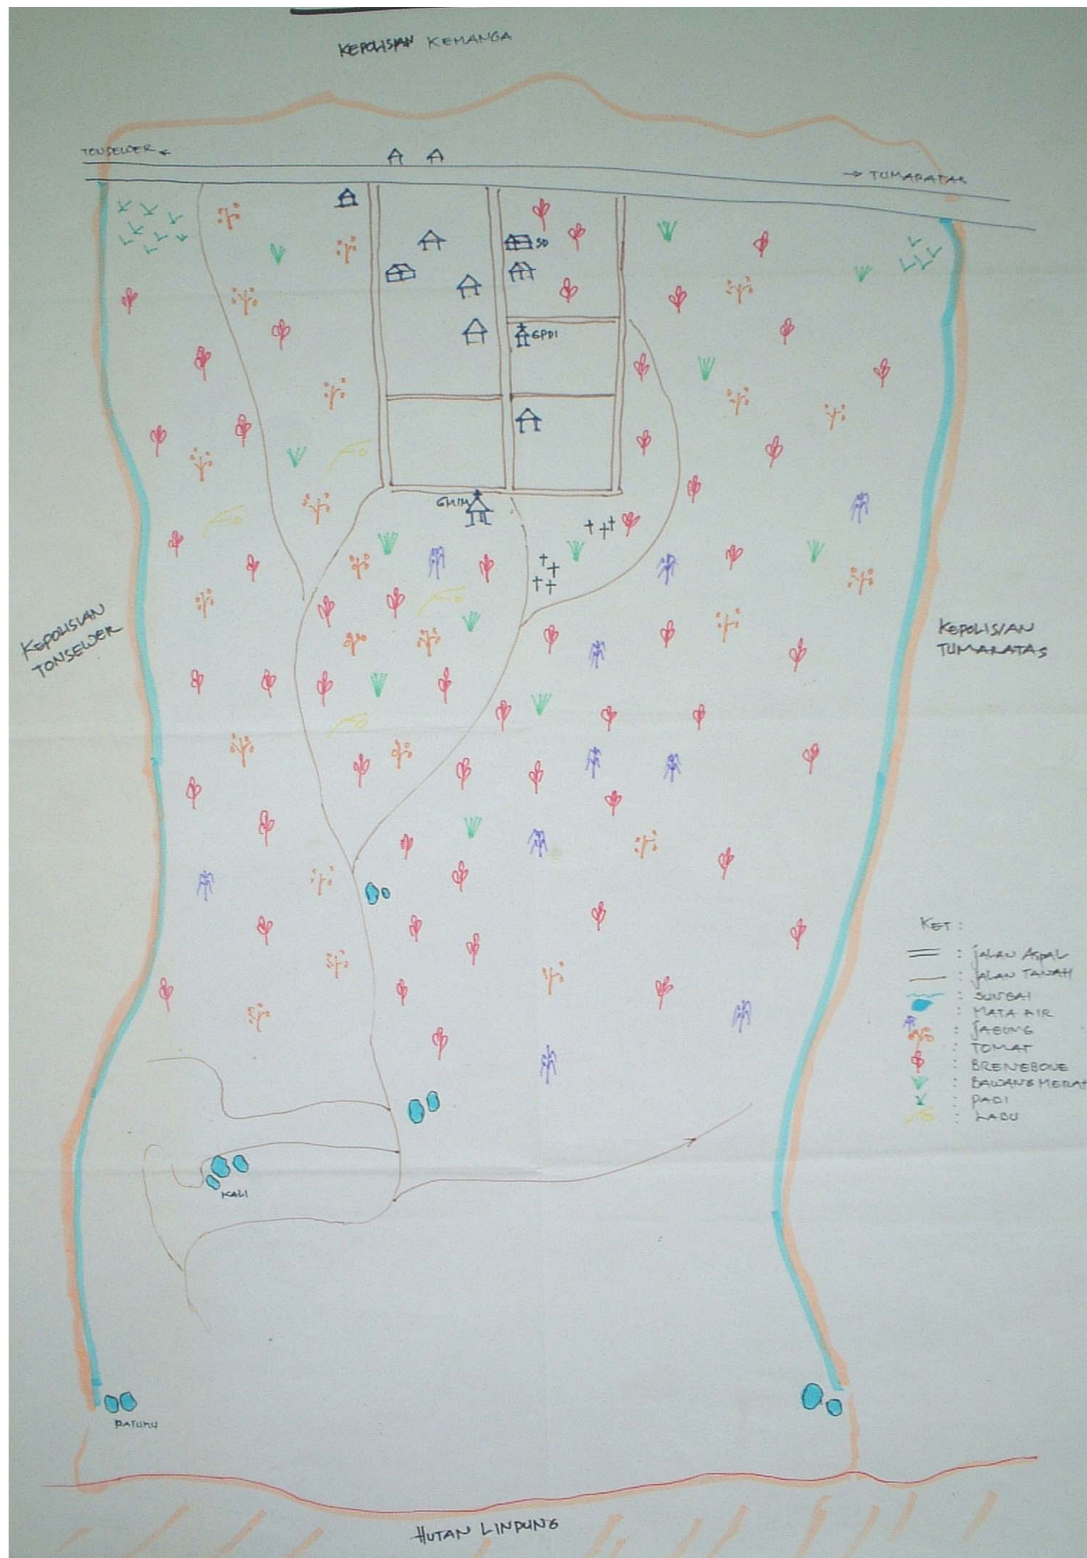 KEPOLISIAN KEMANGA
TONSEWER
TUMARATAS
SD
GPDI
GMIM
KEPOLISIAN
TONSEWER
KEPOLISIAN
TUMARATAS
KET :
: JALAN ASPAL
: JALAN TANAH
: SUNGAI
: MATA AIR
: JAGUNG
: TOMAT
: BRENEBONE
: BAWANG MERAH
: PADI
: LABU
KALI
HUTAN LINDUNG